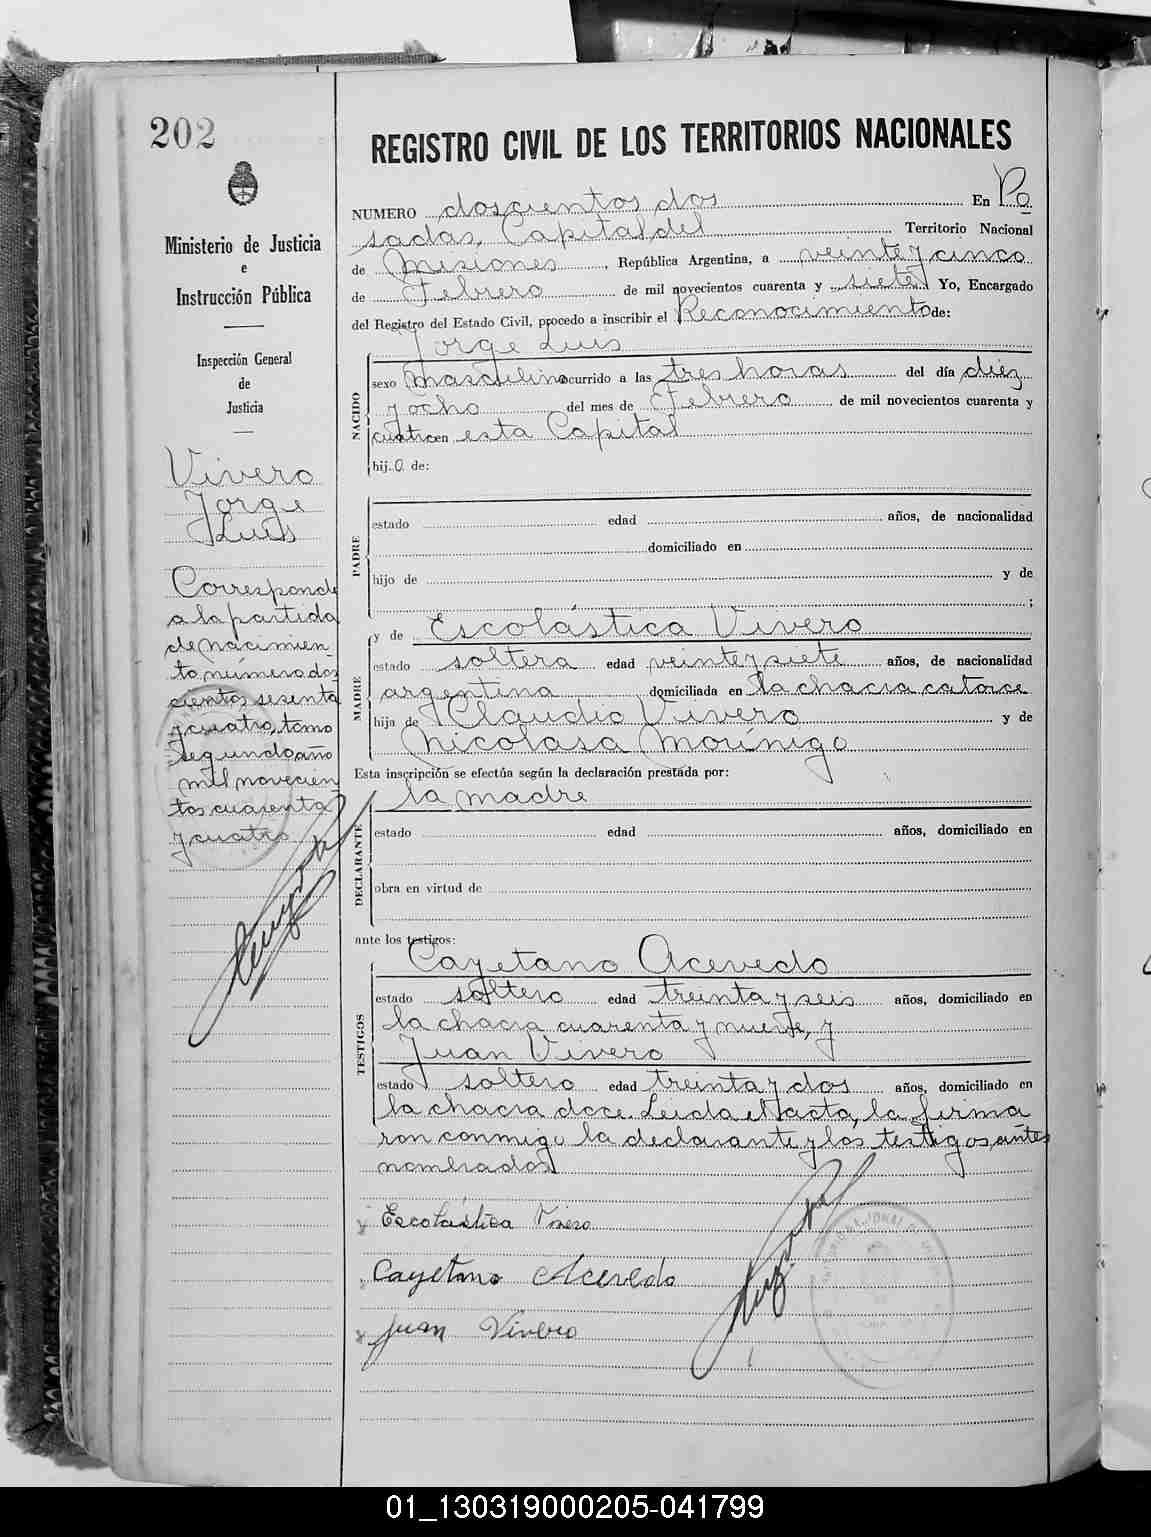 202
REGISTRO CIVIL DE LOS TERRITORIOS NACIONALES
Ministerio de Justicia
e
Instrucción Pública
Inspección General
de
Justicia
Vivero
Jorge
Luis
Corresponde
a la partida
de nacimien
to número dos
cientos sesenta
y cuatro, tomo
segundo año
mil novecien
tos cuarenta
y cuatro
NUMERO doscientos dos En Po
sadas, Capital del Territorio Nacional
de Misiones, República Argentina, a veinte y cinco
de Febrero de mil novecientos cuarenta y siete Yo, Encargado
del Registro del Estado Civil, procedo a inscribir el Reconocimiento de:
Jorge Luis
NACIDO
sexo masculino ocurrido a las tres horas del día diez
y ocho del mes de Febrero de mil novecientos cuarenta y
cuatro en esta Capital
hij o de:
PADRE
estado edad años, de nacionalidad
domiciliado en
hijo de y de
;
MADRE
y de Escolástica Vivero
estado soltera edad veinte y siete años, de nacionalidad
argentina domiciliada en la chacra catorce
hija de Claudio Vivero y de
Nicolasa Morínigo
Esta inscripción se efectúa según la declaración prestada por:
la madre
DECLARANTE
estado edad años, domiciliado en
obra en virtud de
ante los testigos:
Cayetano Acevedo
TESTIGOS
estado soltero edad treinta y seis años, domiciliado en
la chacra cuarenta y nueve, y
Juan Vivero
estado soltero edad treinta y dos años, domiciliado en
la chacra doce. Leida el acta, la firma
ron conmigo la declarante y los testigos antes
nombrados
Escolástica Vivero
Cayetano Acevedo
Juan Vivero
01_130319000205-041799